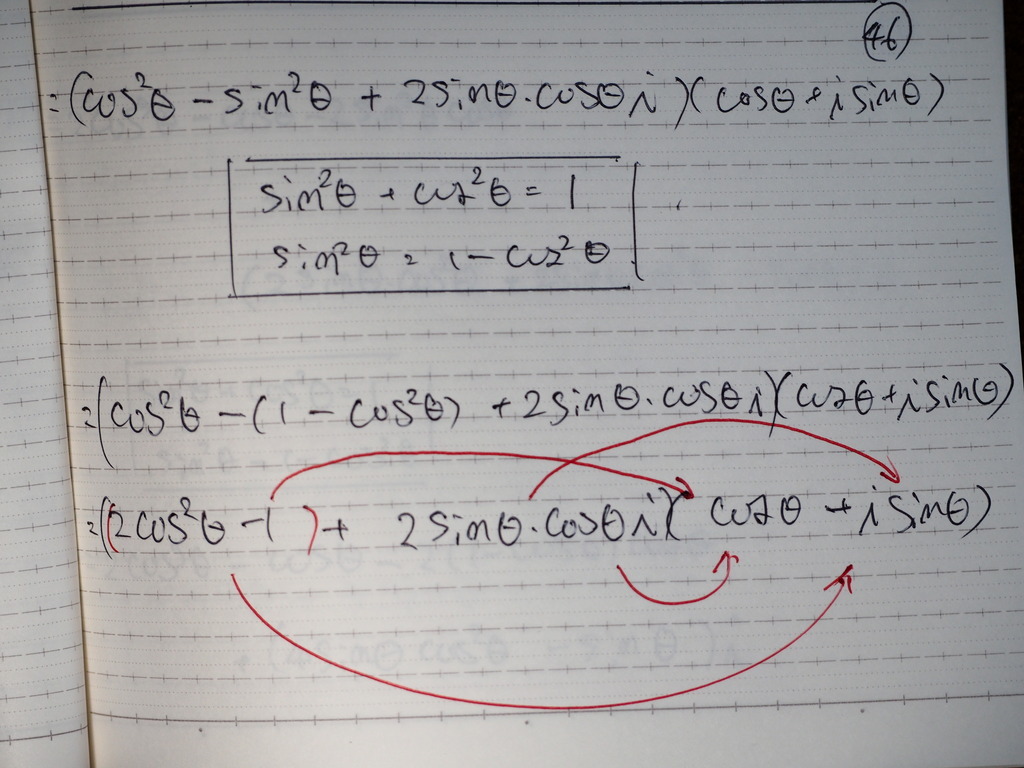 46
= (cos²θ - sin²θ + 2sinθ.cosθ i)(cosθ + i sinθ)
sin²θ + cos²θ = 1
sin²θ = 1 - cos²θ
= (cos²θ - (1 - cos²θ) + 2sinθ.cosθ i)(cosθ + i sinθ)
= ((2cos²θ - 1) + 2sinθ.cosθ i)(cosθ + i sinθ)